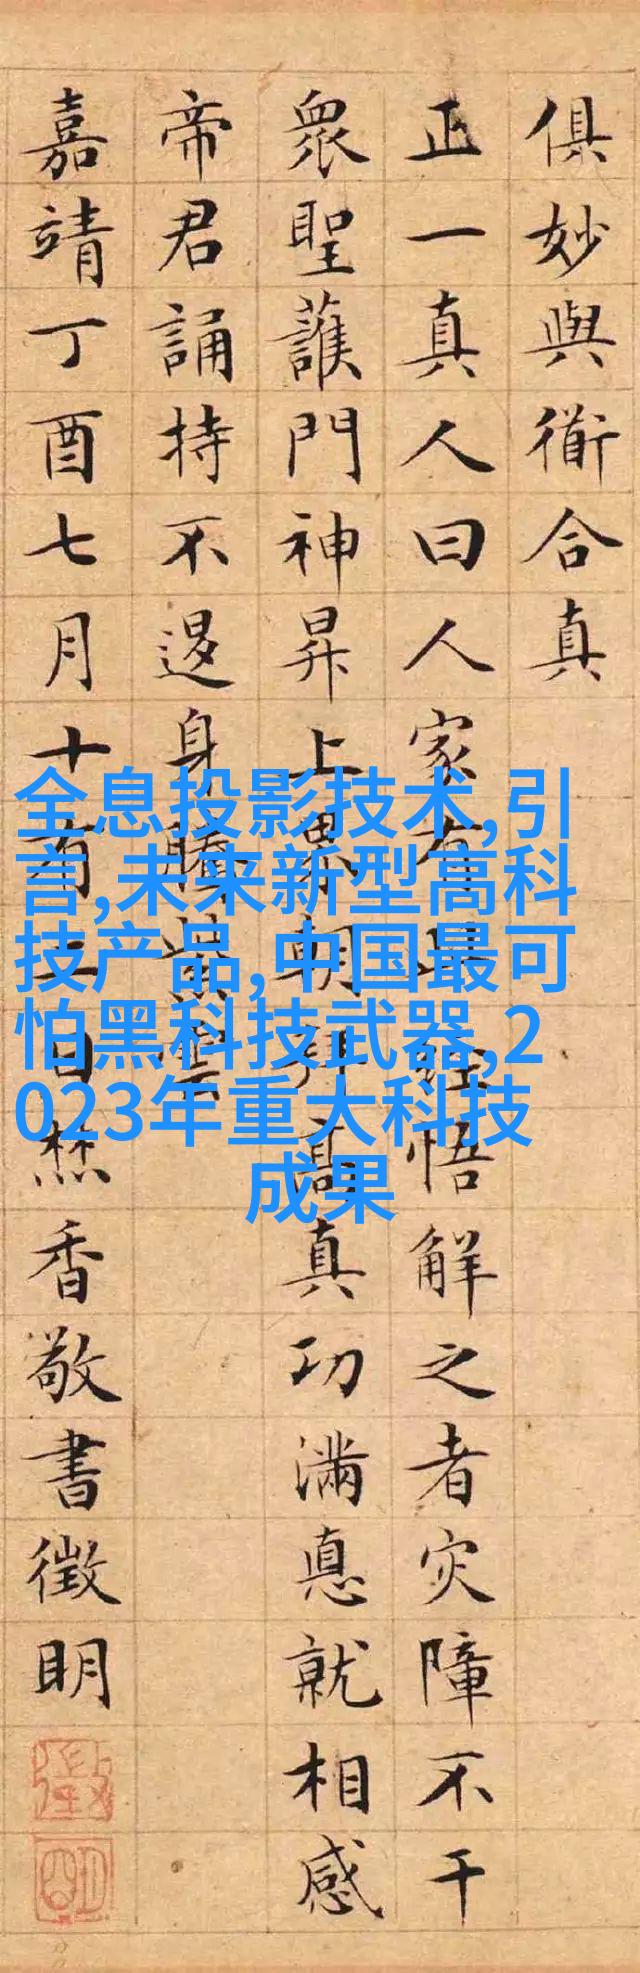 俱妙與衜合真
正一真人曰人家有此經悟解之者灾障不干
衆聖護門神昇上累朝拜高真功滿悳就相感
帝君誦持不退身騰紫雲
嘉靖丁酉七月十有二日焚香敬書徵明
徵明
全息投影技术,引
言,未来新型高科
技产品,中国最可
怕黑科技武器,2
023年重大科技
成果